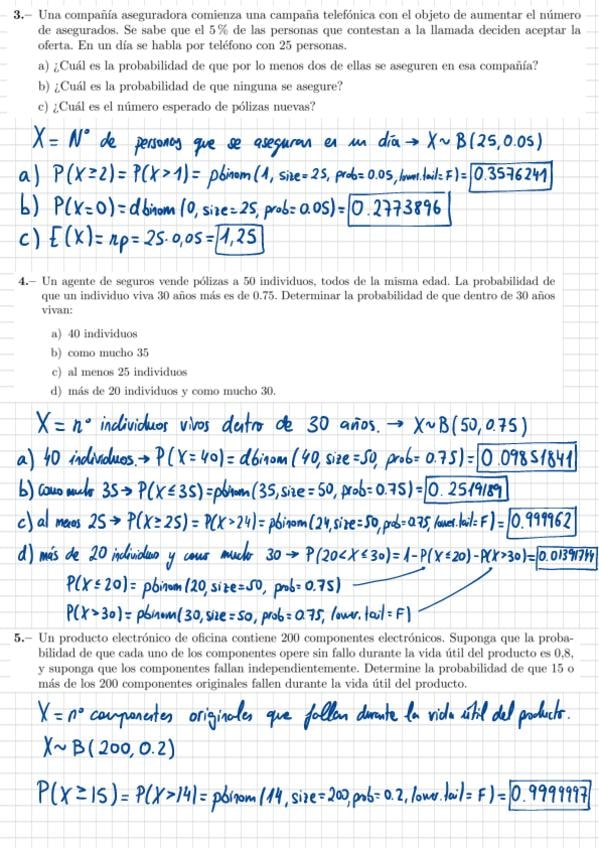 3.– Una compañía aseguradora comienza una campaña telefónica con el objeto de aumentar el número
de asegurados. Se sabe que el 5 % de las personas que contestan a la llamada deciden aceptar la
oferta. En un día se habla por teléfono con 25 personas.
a) ¿Cuál es la probabilidad de que por lo menos dos de ellas se aseguren en esa compañía?
b) ¿Cuál es la probabilidad de que ninguna se asegure?
c) ¿Cuál es el número esperado de pólizas nuevas?
X = Nº de personas que se aseguran en un día → X ~ B(25, 0.05)
a) P(X≥2) = P(X>1) = pbinom(1, size=25, prob=0.05, lower.tail=F) = 0.3576241
b) P(X=0) = dbinom(0, size=25, prob=0.05) = 0.2773896
c) E(X) = np = 25·0,05 = 1,25
4.– Un agente de seguros vende pólizas a 50 individuos, todos de la misma edad. La probabilidad de
que un individuo viva 30 años más es de 0.75. Determinar la probabilidad de que dentro de 30 años
vivan:
a) 40 individuos
b) como mucho 35
c) al menos 25 individuos
d) más de 20 individuos y como mucho 30.
X = nº individuos vivos dentro de 30 años. → X~B(50, 0.75)
a) 40 individuos. → P(X=40) = dbinom(40, size=50, prob=0.75) = 0.09851841
b) como mucho 35 → P(X≤35) = pbinom(35, size=50, prob=0.75) = 0.2519189
c) al menos 25 → P(X≥25) = P(X>24) = pbinom(24, size=50, prob=0.75, lower.tail=F) = 0.999962
d) más de 20 individuos y como mucho 30 → P(20<X≤30) = 1-P(X≤20)-P(X>30) =
P(X≤20) = pbinom(20, size=50, prob=0.75)
P(X>30) = pbinom(30, size=50, prob=0.75, lower.tail=F)
5.– Un producto electrónico de oficina contiene 200 componentes electrónicos. Suponga que la proba-
bilidad de que cada uno de los componentes opere sin fallo durante la vida útil del producto es 0,8,
y suponga que los componentes fallan independientemente. Determine la probabilidad de que 15 o
más de los 200 componentes originales fallen durante la vida útil del producto.
X = nº componentes originales que fallan durante la vida útil del producto.
X~B(200, 0.2)
P(X≥15) = P(X>14) = pbinom(14, size=200, prob=0.2, lower.tail=F) = 0.9999997